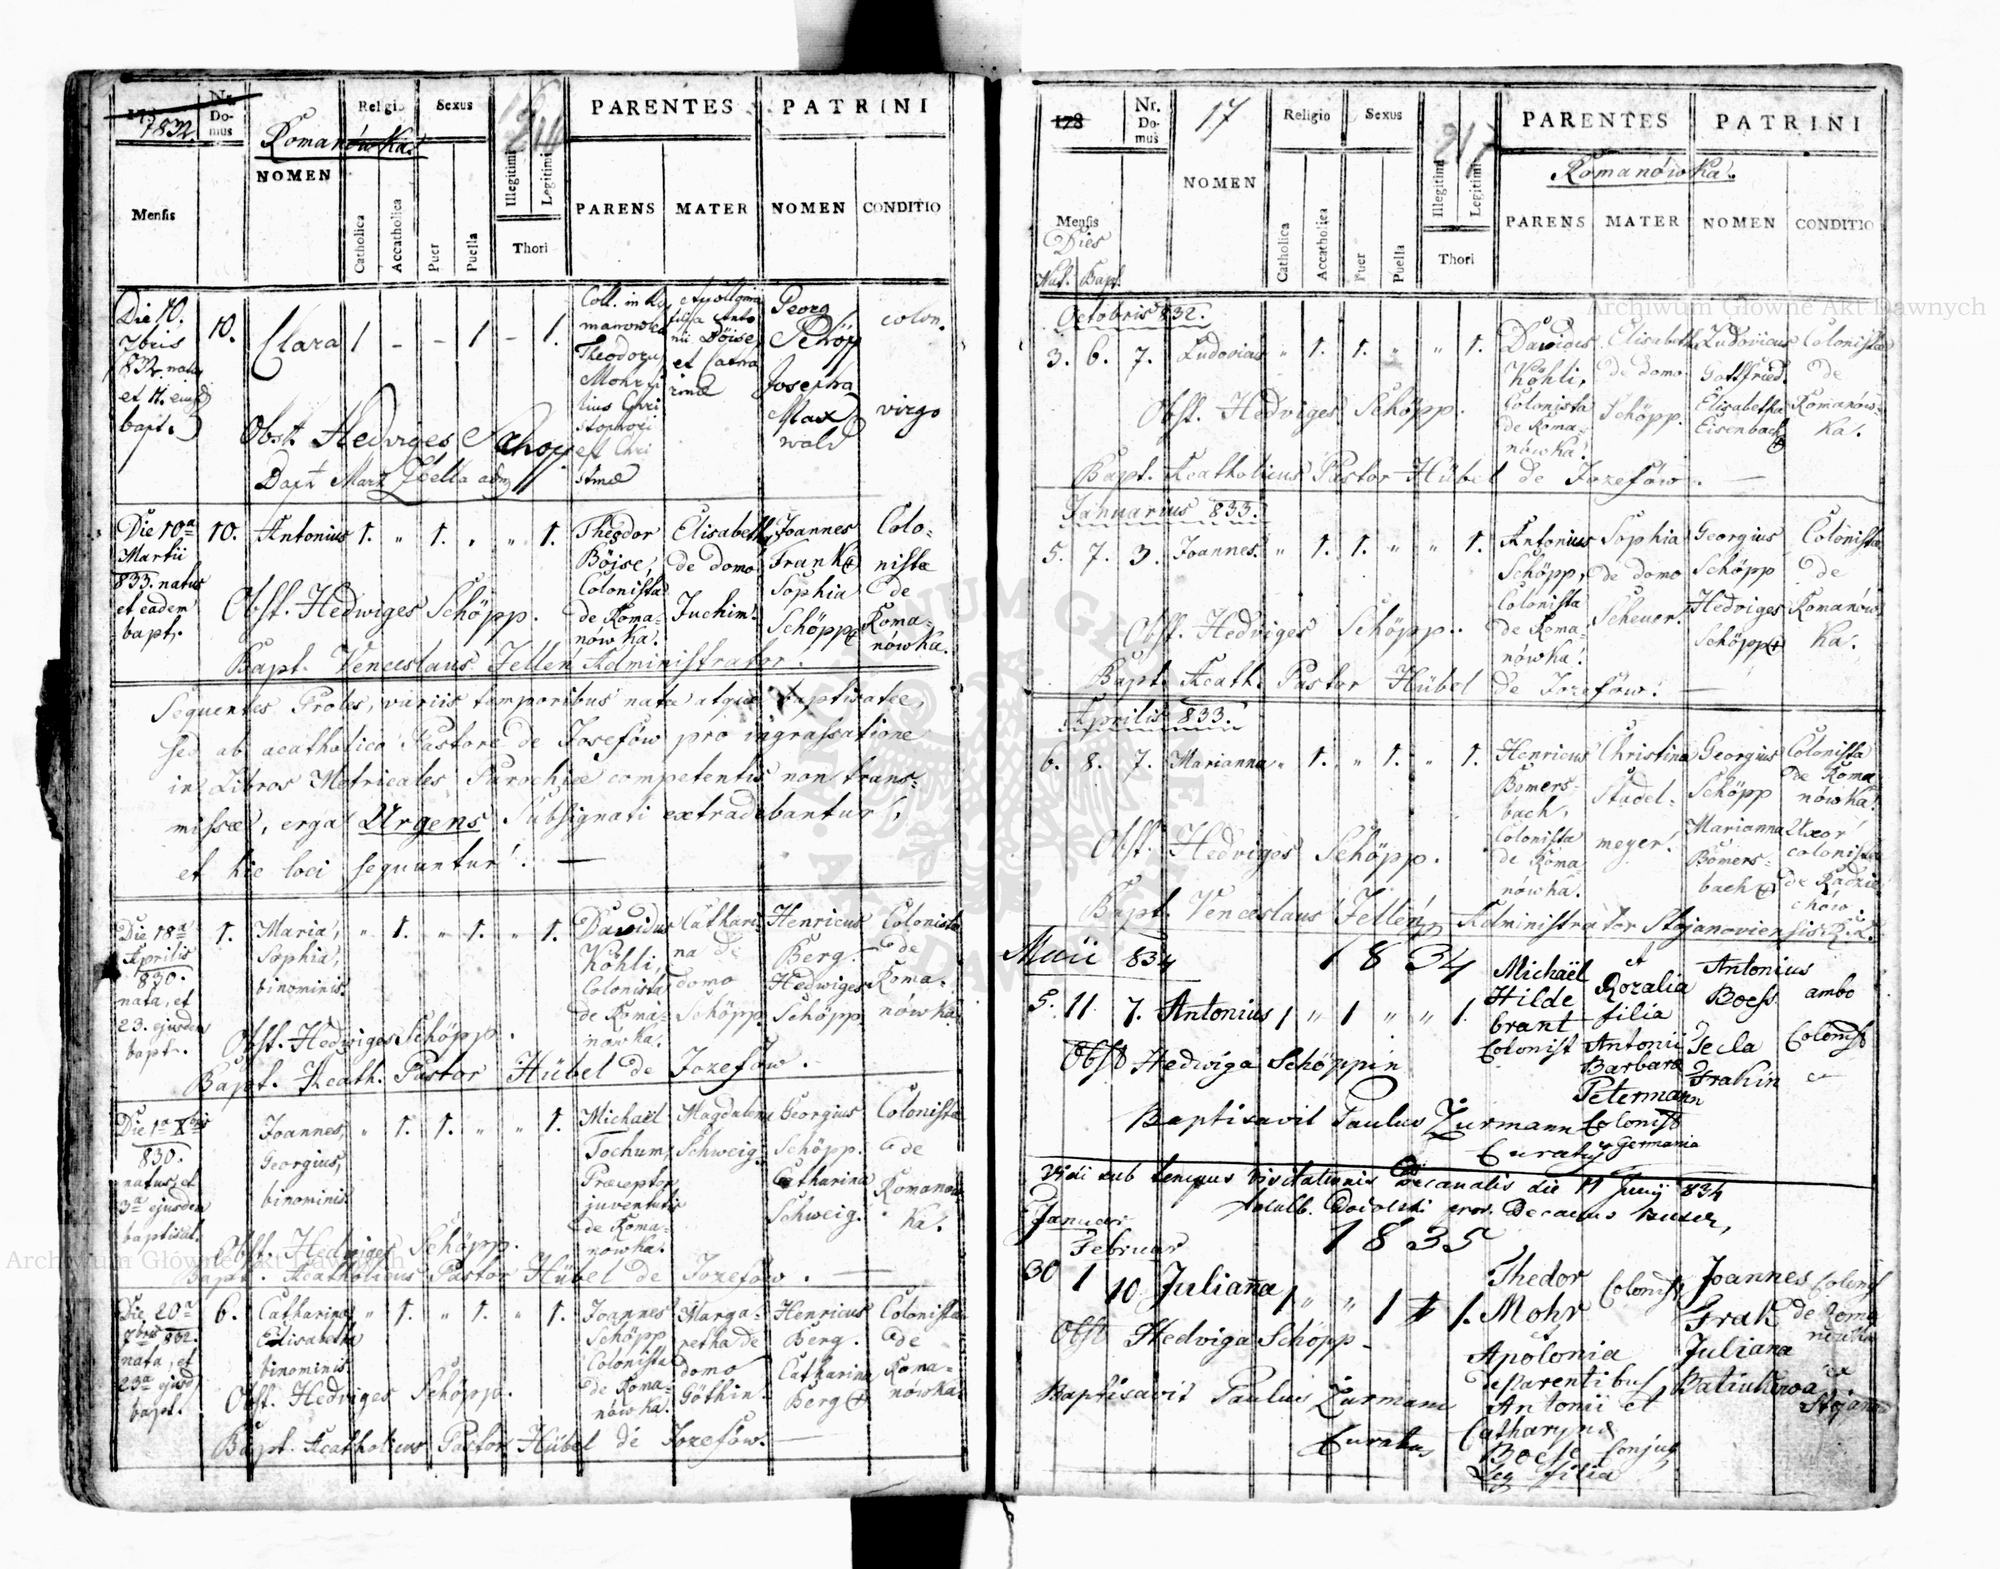 1832
Nr. Domus
Romanówka
Religio
Sexus
PARENTES
PATRINI
NOMEN
Mensis
Catholica
Accatholica
Puer
Puella
Illegitimi
Legitimi
Thori
PARENS
MATER
NOMEN
CONDITIO
Die 10.
7bris
832. nata
et 11. ejusd
bapt.
10.
Clara
1
-
-
1
-
1.
Coll. in Ro
manowka
Theodorus
Mohr fi
lius Chri
stophori
et Chri
stinae
Apollonia
filia Anto
nii Böise
et Catha
rinae
Georg
Schöp
Josepha
Max
wald
colon.
virgo
Obst. Hedviges Schop
Bapt Mart
Die 10a
Martii
833. natus
et eadem
bapt.
10.
Antonius
1.
"
1.
"
"
1.
Theodor
Böise,
Colonista
de Roma-
nówka.
Elisabeth
de domo
Juchim.
Joannes
Frank
Sophia
Schöpp
Colo-
nista
de
Roma-
nówka.
Obst. Hedwiges Schöpp.
Bapt. Venceslaus Jellen Administrator.
Sequentes Proles, variis temporibus nata atque baptisatae,
sed ab acatholico Pastore de Josefów pro ingrassatione
in Libros Metricales Parochiae competentis non trans-
missae, erga Urgens Subsignati extradebantur,
et hic loci sequantur. —
Die 18a
Aprilis
830.
nata, et
23. ejusdem
bapt.
1.
Maria,
Sophia,
binominis.
"
1.
"
1.
"
1.
Davidus
Köhli,
Colonista
de Roma-
nówka.
Cathari-
na de
domo
Schöpp.
Henricus
Berg.
Hedwiges
Schöpp.
Colonista
de
Roma-
nówka.
Obst. Hedwiges Schöpp.
Bapt. Acath. Pastor Hübel de Jozefów.
Die 1a Xbris
830.
natus, et
3a ejusdem
baptisat.
Joannes,
Georgius,
binominis.
"
1.
1.
"
"
1.
Michaël
Jochum,
Praeceptor
juventutis
de Roma-
nówka.
Magdalena
Schweig.
Georgius
Schöpp.
Catharina
Schweig.
Colonista
de
Romanów-
ka.
Obst. Hedwiges Schöpp.
Bapt. Acatholicus Pastor Hübel de Jozefów. —
Die 20a
7bris 832.
nata, et
23a ejusd
bapt.
6.
Catharina
Elisabetha
binominis
"
1.
"
1.
"
1.
Joannes
Schöpp
Colonista
de Roma-
nówka.
Marga-
retha de
domo
Göthin.
Henricus
Berg.
Catharina
Berg
Colonista
de
Roma-
nówka.
Obst. Hedviges Schöpp.
Bapt. Acatholicus Pastor Hübel de Jozefów. —
178
Nr. Domus
17
NOMEN
Religio
Sexus
217
PARENTES
PATRINI
Romanówka.
Mensis
Dies
Nat. Bapt.
Catholica
Accatholica
Puer
Puella
Illegitimi
Legitimi
Thori
PARENS
MATER
NOMEN
CONDITIO
Octobris 832.
3. 6. 7. Ludovicus " 1. 1. " " 1.
Davides
Köhli,
Colonista
de Roma-
nówka.
Elisabeth
de domo
Schöpp.
Ludovicus
Gottfried.
Elisabetha
Eisenbach
Colonista
de
Romanów-
ka.
Obst. Hedviges Schöpp.
Bapt. Acatholicus Pastor Hübel de Jozefów. —
Januarius 833.
5. 7. 3. Joannes. " 1. 1. " " 1.
Antonius
Schöpp,
Colonista
de Roma-
nówka.
Sophia
de domo
Scheuer.
Georgius
Schöpp
Hedviges
Schöpp
Colonista
de
Romanów-
ka.
Obst. Hedviges Schöpp.
Bapt. Acath. Pastor Hübel de Jozefów. —
Aprilis 833.
6. 8. 7. Marianna " 1. " 1. " 1.
Henricus
Bömers-
bach,
Colonista
de Roma
nówka.
Christina
Stadel-
meyer.
Georgius
Schöpp
Marianna
Bömers-
bach
Colonista
de Roma
nówka.
Uxor
colonista
de Radzie-
chów.
Obst. Hedviges Schöpp.
Bapt. Venceslaus Jellen Administrator Stojanoviensis R. L.
Maii 834 1834
5. 11. 7. Antonius 1 " 1 " " 1.
Michaël
Hilde
brant
Colonist
et
Rozalia
filia
Antonii
Barbara
Petermann
Colonist
Germania
Antonius
Boess
Tecla
Frakin
ambo
Colonist
Obst Hedwiga Schöppin
Baptisavit Paulus Zurmann
Curatus
Vidi sub tempus visitationis Decanalis die 11 Junij 834
Januari
Februar
1835
30 1 10 Julianna 1 " " 1 1.
Thedor
Mohr
Colonist
et
Apolonia
de parentibus
Antonii et
Catharyna
Boese Conjug
Leg filia
Joannes
Frak
Juliana
Batiukowa
Colonist
de Roma
nówka
ex
Stojanow
Obst Hedviga Schöpp-
Baptisavit Paulus Zurmann
Curatus
Archiwum Główne Akt Dawnych
Archiwum Główne Akt Dawnych